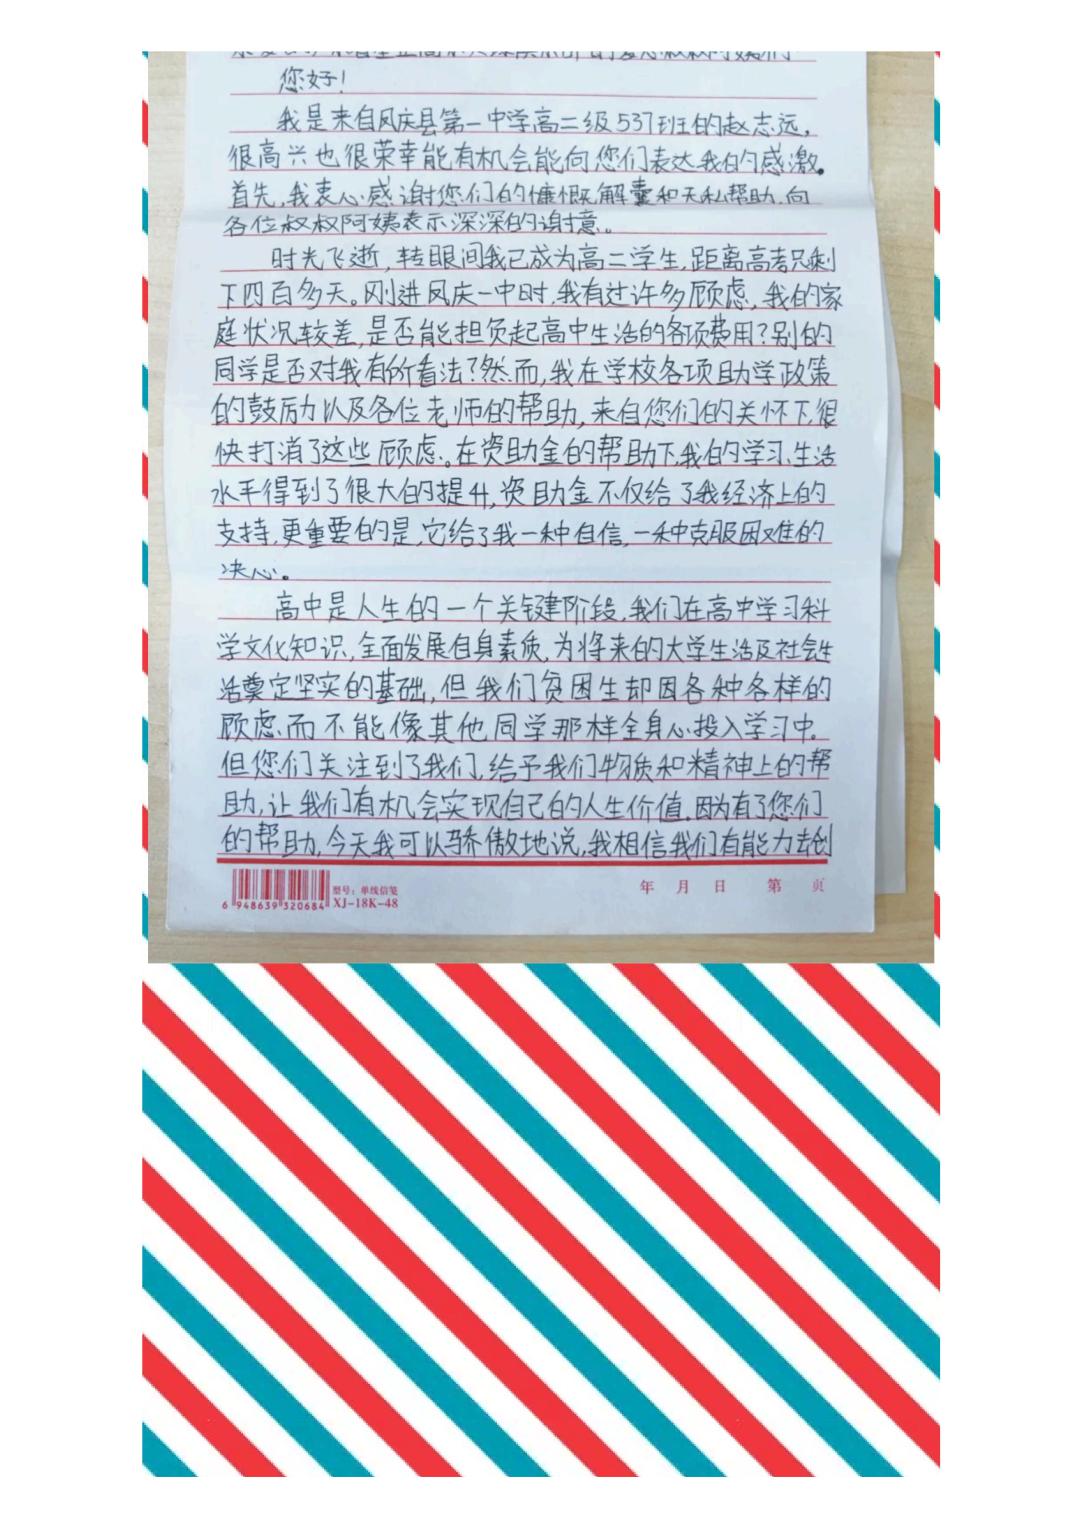 您好！
我是来自凤庆县第一中学高二级537班的赵志远，
很高兴也很荣幸能有机会能向您们表达我的感激。
首先，我衷心感谢您们的慷慨解囊和无私帮助，向
各位叔叔阿姨表示深深的谢意。
时光飞逝，转眼间我已成为高二学生，距离高考只剩
下四百多天。刚进凤庆一中时，我有过许多顾虑，我的家
庭状况较差，是否能担负起高中生活的各项费用？别的
同学是否对我有偏看法？然而，我在学校各项助学政策
的鼓励以及各位老师的帮助，来自您们的关怀下，很
快打消了这些顾虑。在资助金的帮助下，我的学习、生活
水平得到了很大的提升，资助金不仅给了我经济上的
支持，更重要的是，它给了我一种自信，一种克服困难的
决心。
高中是人生的一个关键阶段，我们在高中学习科
学文化知识，全面发展自身素质，为将来的大学生活及社会生
活奠定坚实的基础，但我们贫困生却因各种各样的
顾虑而不能像其他同学那样全身心投入学习中。
但您们关注到了我们，给予我们物质和精神上的帮
助，让我们有机会实现自己的人生价值。因为有了您们
的帮助，今天我可以骄傲地说，我相信我们有能力去创
型号：单线信笺
6 948639 320684 XJ-18K-48
年 月 日 第 页